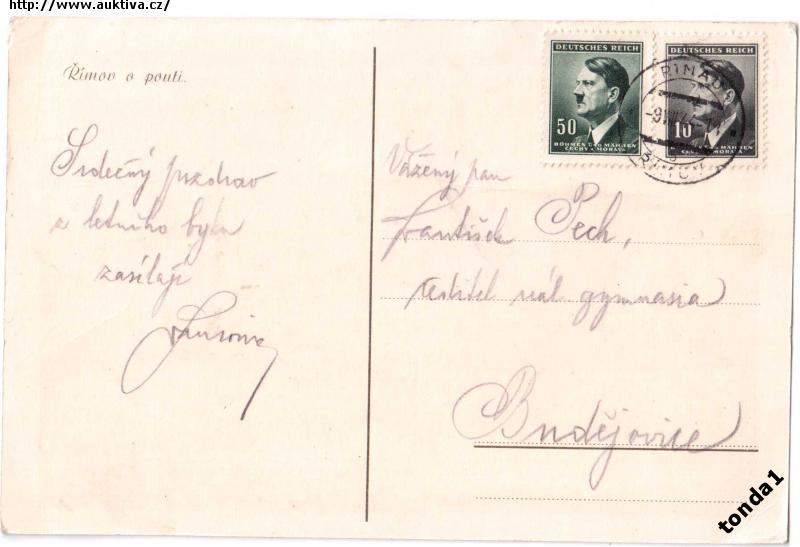 http://www.auktiva.cz/
Římov o pouti.
Srdečný pozdrav
z letního bytu
zasílají
DEUTSCHES REICH
50
BÖHMEN UND MÄHREN
ČECHY A MORAVA
DEUTSCHES REICH
10
BÖHMEN UND MÄHREN
ČECHY A MORAVA
Vážený pan
František Pech,
ředitel reál. gymnasia
Budějovice
tonda1